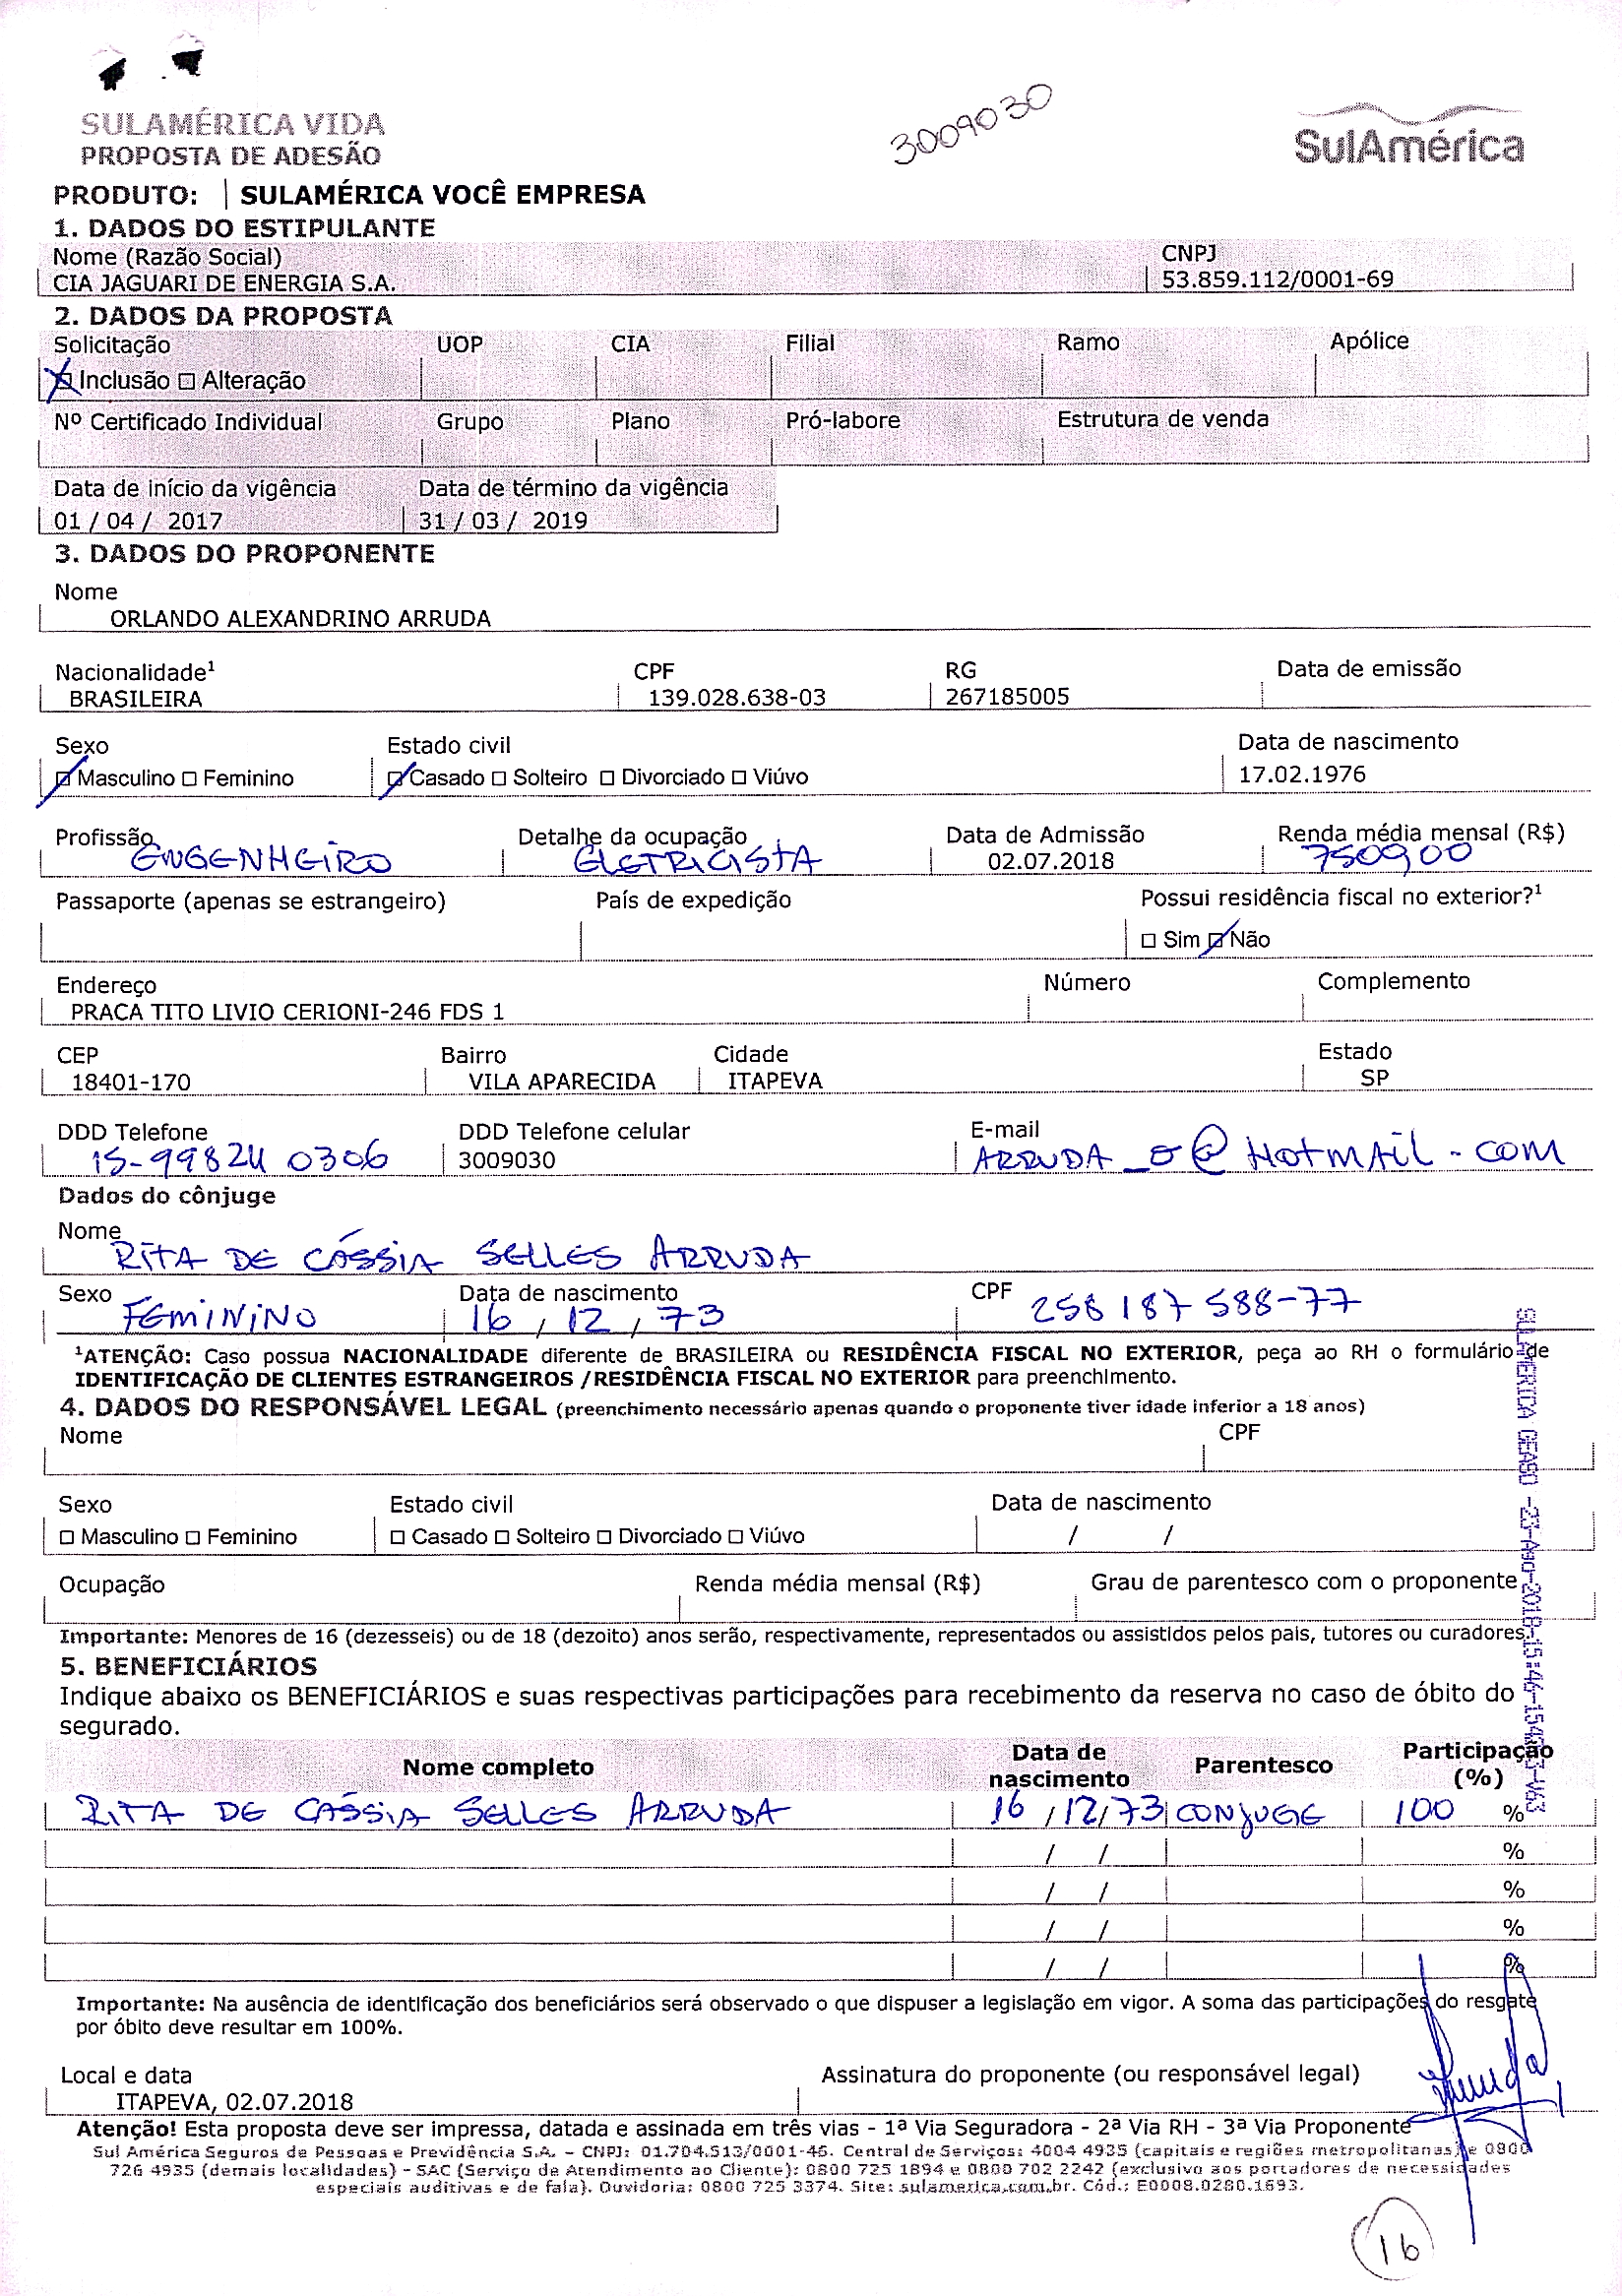 3009030
SULAMÉRICA VIDA
PROPOSTA DE ADESÃO
SulAmérica
PRODUTO: SULAMÉRICA VOCÊ EMPRESA
1. DADOS DO ESTIPULANTE
Nome (Razão Social) CNPJ
CIA JAGUARI DE ENERGIA S.A. 53.859.112/0001-69
2. DADOS DA PROPOSTA
Solicitação UOP CIA Filial Ramo Apólice
☒ Inclusão ☐ Alteração
Nº Certificado Individual Grupo Plano Pró-labore Estrutura de venda
Data de início da vigência Data de término da vigência
01 / 04 / 2017 31 / 03 / 2019
3. DADOS DO PROPONENTE
Nome
ORLANDO ALEXANDRINO ARRUDA
Nacionalidade¹ CPF RG Data de emissão
BRASILEIRA 139.028.638-03 267185005
Sexo Estado civil Data de nascimento
☒ Masculino ☐ Feminino ☒ Casado ☐ Solteiro ☐ Divorciado ☐ Viúvo 17.02.1976
Profissão Detalhe da ocupação Data de Admissão Renda média mensal (R$)
ENGENHEIRO ELETRICISTA 02.07.2018 7509,00
Passaporte (apenas se estrangeiro) País de expedição Possui residência fiscal no exterior?¹
☐ Sim ☒ Não
Endereço Número Complemento
PRACA TITO LIVIO CERIONI-246 FDS 1
CEP Bairro Cidade Estado
18401-170 VILA APARECIDA ITAPEVA SP
DDD Telefone DDD Telefone celular E-mail
15-99824 0306 3009030 ARRUDA_O@HOTMAIL.COM
Dados do cônjuge
Nome
RITA DE CÁSSIA SELLES ARRUDA
Sexo Data de nascimento CPF
FEMININO 16 / 12 / 73 258 187 588-77
¹ATENÇÃO: Caso possua NACIONALIDADE diferente de BRASILEIRA ou RESIDÊNCIA FISCAL NO EXTERIOR, peça ao RH o formulário de
IDENTIFICAÇÃO DE CLIENTES ESTRANGEIROS /RESIDÊNCIA FISCAL NO EXTERIOR para preenchimento.
4. DADOS DO RESPONSÁVEL LEGAL (preenchimento necessário apenas quando o proponente tiver idade inferior a 18 anos)
Nome CPF
Sexo Estado civil Data de nascimento
☐ Masculino ☐ Feminino ☐ Casado ☐ Solteiro ☐ Divorciado ☐ Viúvo / /
Ocupação Renda média mensal (R$) Grau de parentesco com o proponente
Importante: Menores de 16 (dezesseis) ou de 18 (dezoito) anos serão, respectivamente, representados ou assistidos pelos pais, tutores ou curadores.
5. BENEFICIÁRIOS
Indique abaixo os BENEFICIÁRIOS e suas respectivas participações para recebimento da reserva no caso de óbito do
segurado.
Nome completo Data de nascimento Parentesco Participação (%)
RITA DE CÁSSIA SELLES ARRUDA 16 / 12 / 73 CONJUGE 100 %
/ / %
/ / %
/ / %
/ / %
Importante: Na ausência de identificação dos beneficiários será observado o que dispuser a legislação em vigor. A soma das participações do resgate
por óbito deve resultar em 100%.
Local e data Assinatura do proponente (ou responsável legal)
ITAPEVA, 02.07.2018
Atenção! Esta proposta deve ser impressa, datada e assinada em três vias - 1ª Via Seguradora - 2ª Via RH - 3ª Via Proponente
Sul América Seguros de Pessoas e Previdência S.A. – CNPJ: 01.704.513/0001-46. Central de Serviços: 4004 4935 (capitais e regiões metropolitanas) e 0800
726 4935 (demais localidades) - SAC (Serviço de Atendimento ao Cliente): 0800 725 1894 e 0800 702 2242 (exclusivo aos portadores de necessidades
especiais auditivas e de fala). Ouvidoria: 0800 725 3374. Site: sulamerica.com.br. Cód.: E0008.0280.1693.
16